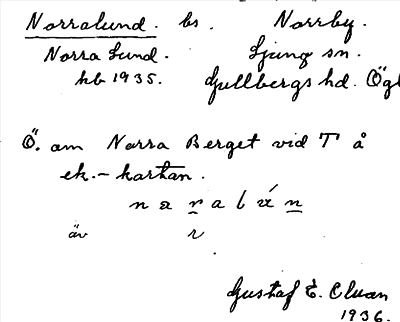 Norralund. bs. Norrby.
Norra Lund. Ljung sn.
hb 1935. Gullbergs hd. Ögl
Ö. om Norra Berget vid T å
ek.-kartan.
n a r a l ú n
äv r
Gustaf E. Cluan
1936.